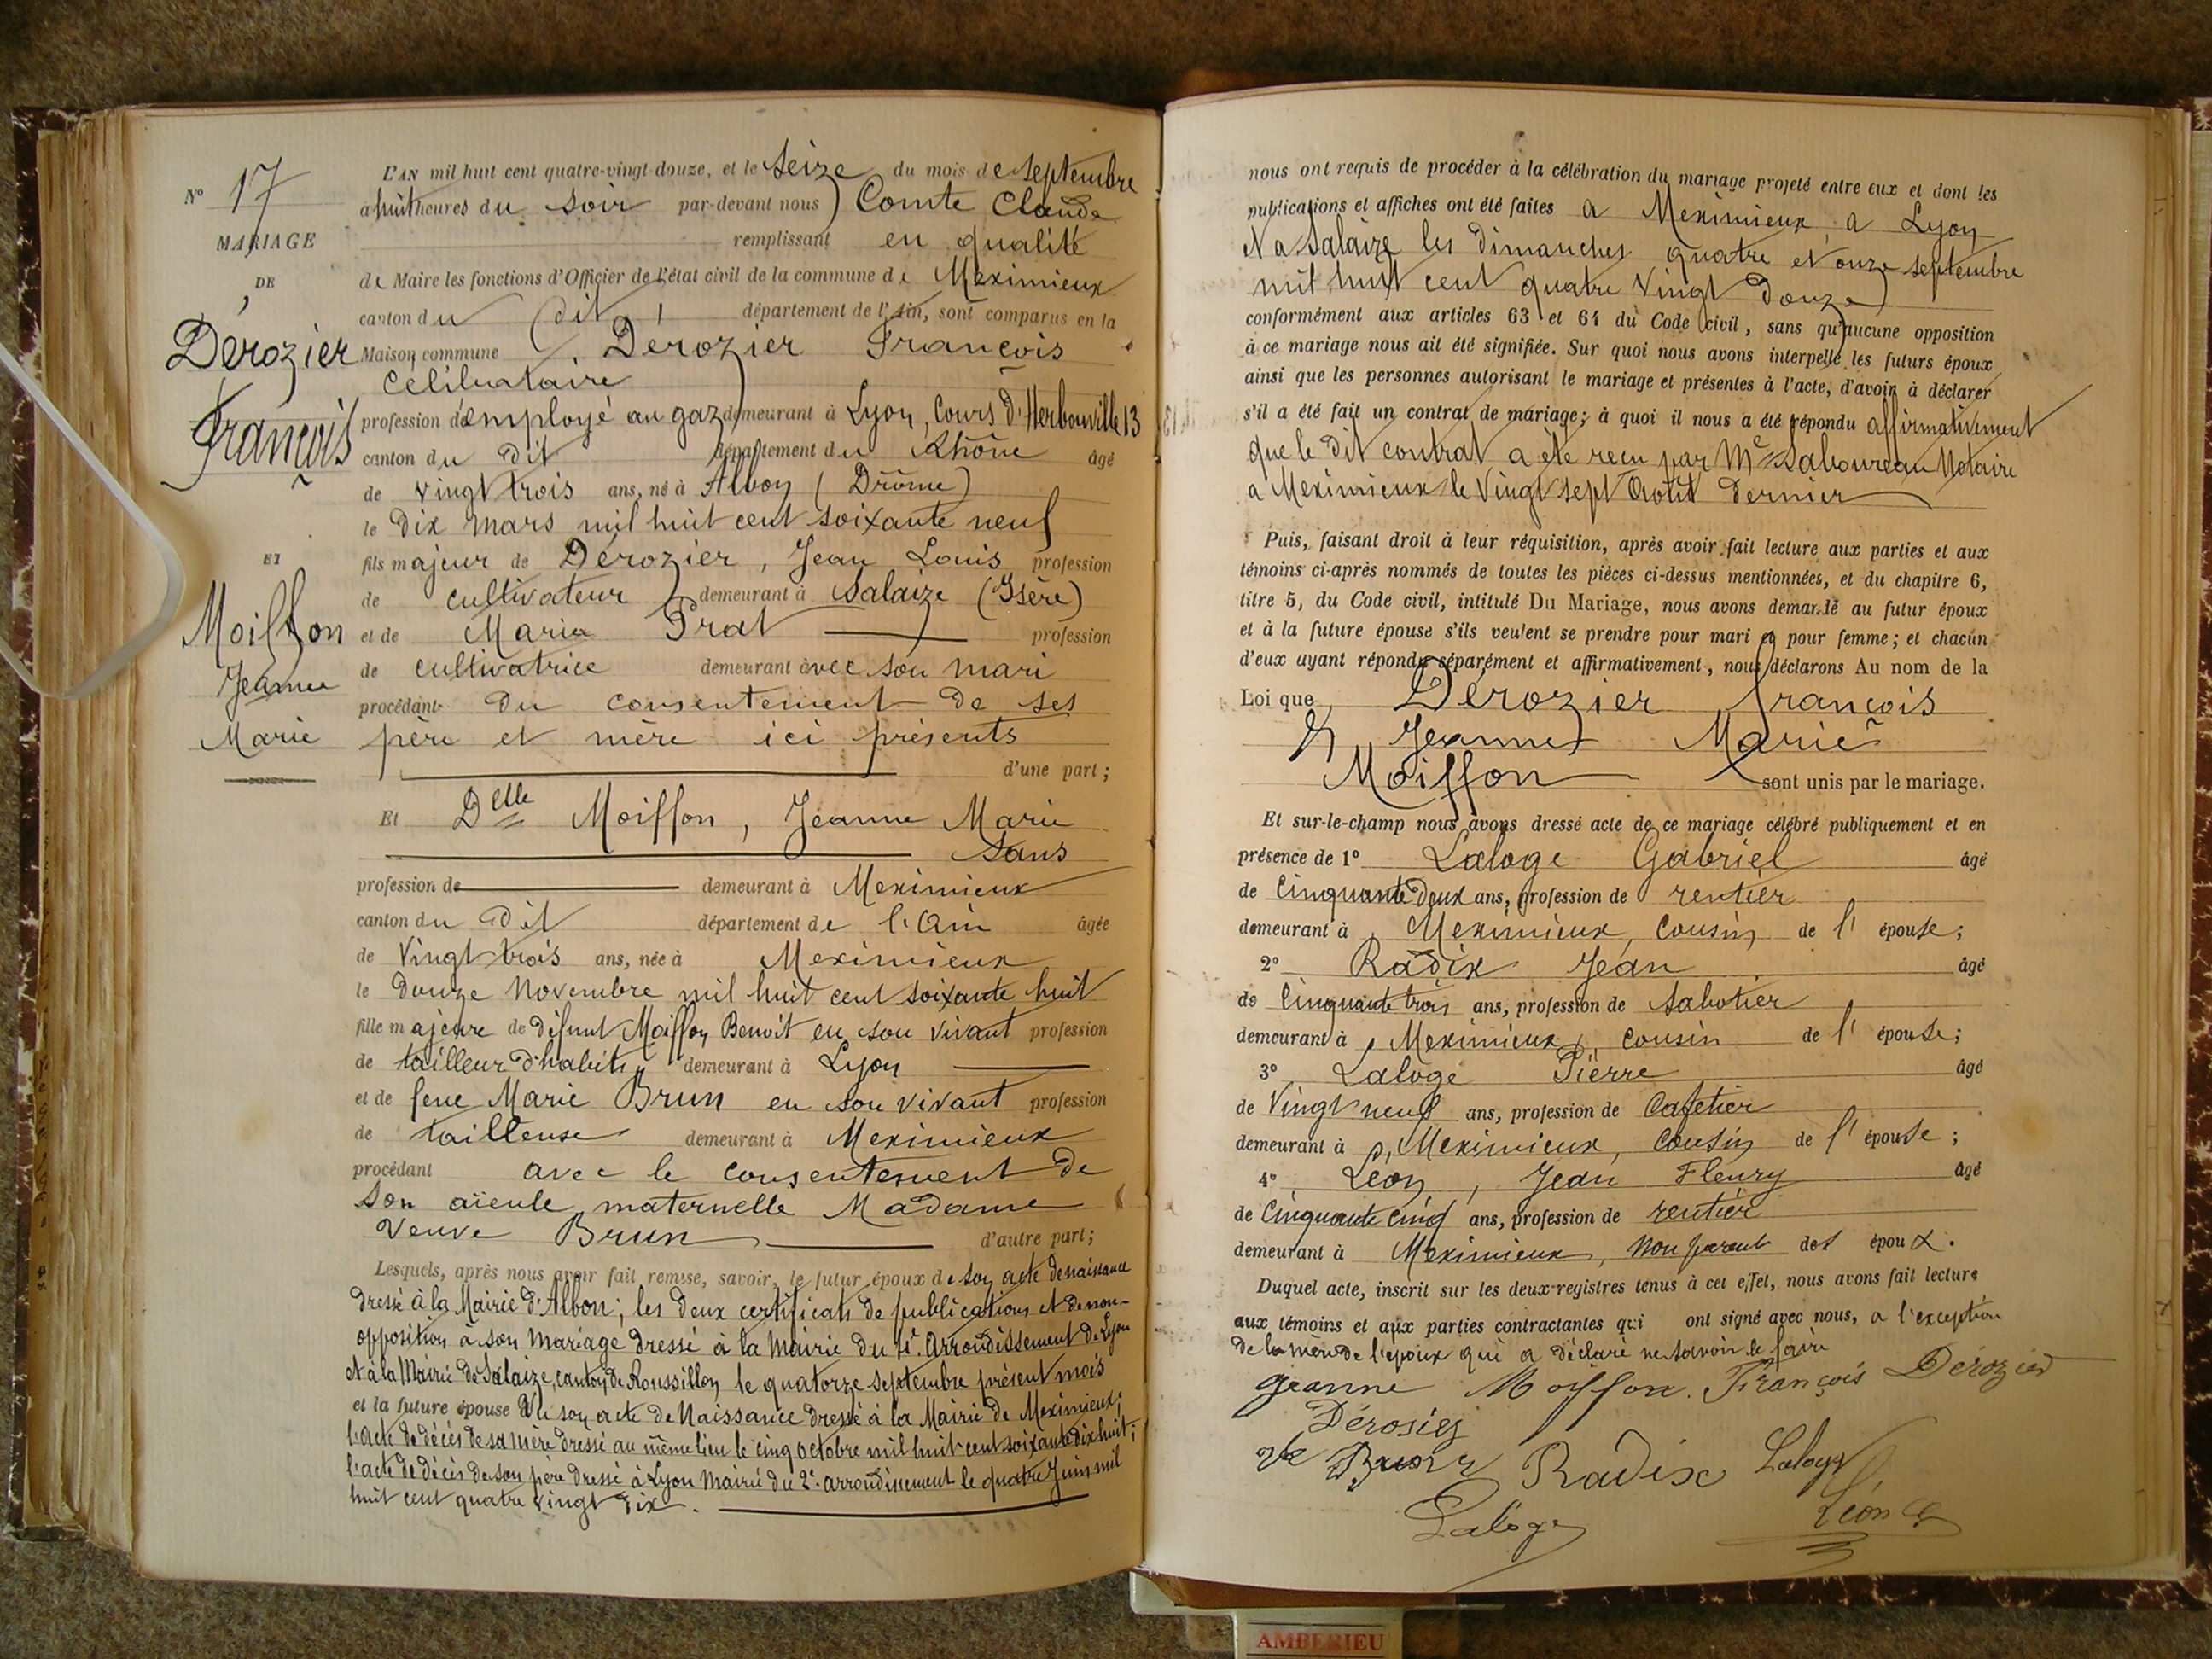 N° 17
MARIAGE
DE
Dérozier
François
ET
Moiffon
Jeanne
Marie
L'AN mil huit cent quatre-vingt-douze, et le seize du mois de septembre
à huit heures du soir par-devant nous Comte Claude
remplissant en qualité
de Maire les fonctions d'Officier de l'état civil de la commune de Meximieux
canton du dit département de l'Ain, sont comparus en la
Maison commune Derozier François
célibataire
profession d'employé au gaz demeurant à Lyon, Cours d'Herbouville 13
canton du dit département du Rhône âgé
de vingt trois ans, né à Albon (Drôme)
le dix mars mil huit cent soixante neuf
fils majeur de Dérozier, Jean Louis profession
de cultivateur demeurant à Salaize (Isère)
et de Marie Prat profession
de cultivatrice demeurant avec son mari
procédant du consentement de ses
père et mère ici présents
d'une part;
Et Delle Moiffon, Jeanne Marie
sans
profession de demeurant à Meximieux
canton du dit département de l'Ain âgée
de vingt trois ans, née à Meximieux
le douze Novembre mil huit cent soixante huit
fille majeure de défunt Moiffon Benoît en son vivant profession
de tailleur d'habits demeurant à Lyon
et de feue Marie Brun en son vivant profession
de tailleuse demeurant à Meximieux
procédant avec le consentement de
son aïeule maternelle Madame
Veuve Brun d'autre part;
Lesquels, après nous avoir fait remise, savoir, le futur époux de son acte de naissance
dressé à la Mairie d'Albon; les deux certificats de publications et de non-
opposition à son mariage dressé à la Mairie du 4e arrondissement de Lyon
et à la Mairie de Salaize, canton de Roussillon le quatorze septembre présent mois
et la future épouse de son acte de Naissance dressé à la Mairie de Meximieux;
l'acte de décès de sa mère dressé au même lieu le cinq octobre mil huit cent soixante dix huit;
l'acte de décès de son père dressé à Lyon Mairie du 2e arrondissement le quatre Juin mil
huit cent quatre vingt dix.
nous ont requis de procéder à la célébration du mariage projeté entre eux et dont les
publications et affiches ont été faites à Meximieux, à Lyon
et à Salaize les dimanches quatre et onze septembre
mil huit cent quatre vingt douze
conformément aux articles 63 et 64 du Code civil, sans qu'aucune opposition
à ce mariage nous ait été signifiée. Sur quoi nous avons interpellé les futurs époux
ainsi que les personnes autorisant le mariage et présentes à l'acte, d'avoir à déclarer
s'il a été fait un contrat de mariage; à quoi il nous a été répondu affirmativement
que le dit contrat a été reçu par Me Laboureau Notaire
à Meximieux le vingt sept Août dernier
Puis, faisant droit à leur réquisition, après avoir fait lecture aux parties et aux
témoins ci-après nommés de toutes les pièces ci-dessus mentionnées, et du chapitre 6,
titre 5, du Code civil, intitulé Du Mariage, nous avons demandé au futur époux
et à la future épouse s'ils veulent se prendre pour mari et pour femme; et chacun
d'eux ayant répondu séparément et affirmativement, nous déclarons Au nom de la
Loi que Dérozier François
Et Jeanne Marie
Moiffon sont unis par le mariage.
Et sur-le-champ nous avons dressé acte de ce mariage célébré publiquement et en
présence de 1° Laloge Gabriel âgé
de cinquante deux ans, profession de rentier
demeurant à Meximieux, cousin de l'épouse;
2° Radix Jean âgé
de cinquante trois ans, profession de sabotier
demeurant à Meximieux, cousin de l'épouse;
3° Laloge Pierre âgé
de vingt neuf ans, profession de cafetier
demeurant à Meximieux, cousin de l'épouse;
4° Léon, Jean Fleury âgé
de cinquante cinq ans, profession de rentier
demeurant à Meximieux, non parent des époux.
Duquel acte, inscrit sur les deux registres tenus à cet effet, nous avons fait lecture
aux témoins et aux parties contractantes qui ont signé avec nous, à l'exception
de la mère de l'époux qui a déclaré ne savoir le faire
Jeanne Moiffon. François Dérozier
Dérosier
Ve Brun Radix Laloge
Laloge Léon
AMBERIEU